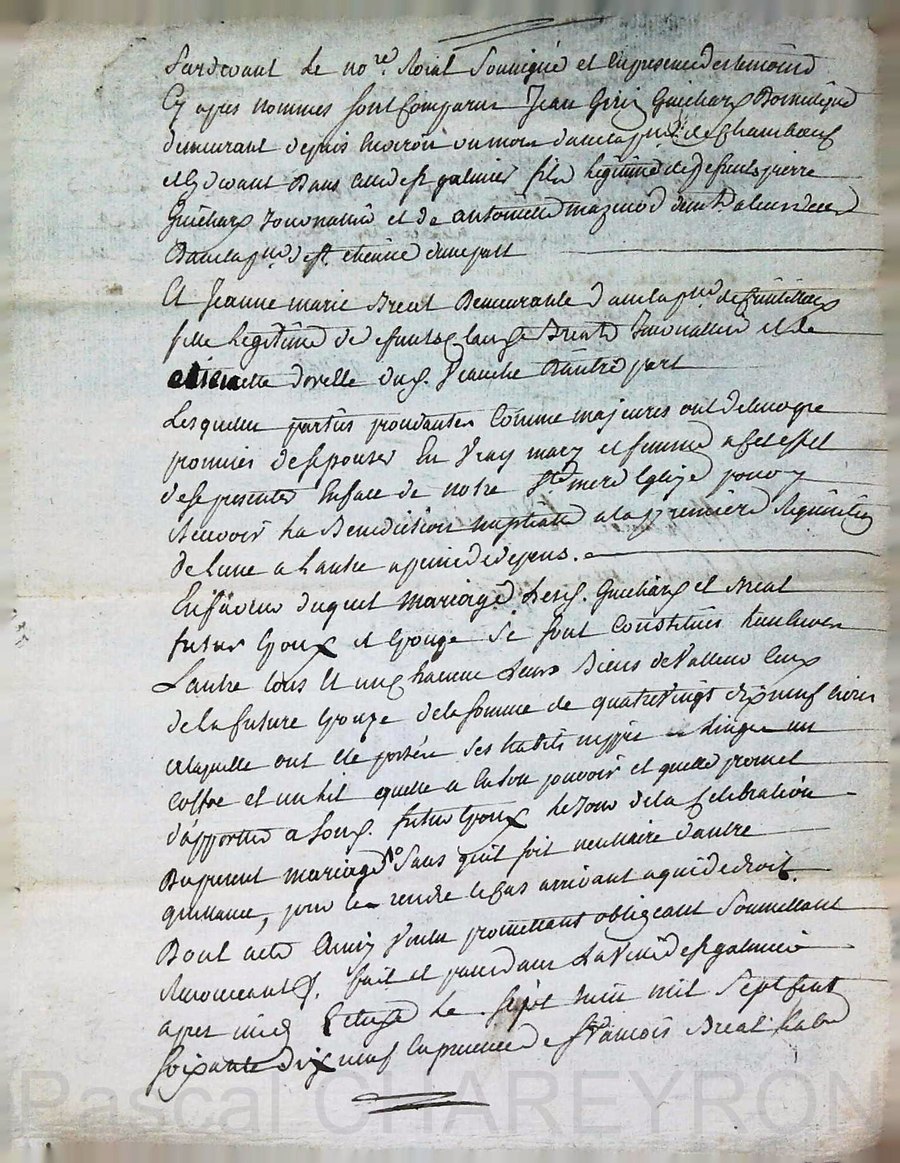 Pardevant le no.re Roial Soussigné et en presence des temoins
Cy apres nommés sont Comparus Jean Guichard Domestique
demeurant depuis Environ un mois dans la p.sse de Chambœuf
et cy devant dans celle de st galmier fils légitime de defunts pierre
Guichard Journallier et de antoinette mazenod demt. a leur deces
Dans la p.sse de st. etienne d'une part
Et Jeanne marie Breat Demeurante dans la p.sse de
fille legitime de defunts Claude Breat Journallier et de
d'autre part
Lesquelles parties procedantes Comme majeures ont de leur gre
promis de s'epouser En Vray mary et femme a cet effet
de se presenter En face de notre ste mere Eglise pour y
Recevoir la Benediction nuptialle a la premiere Requisition
de l'une a l'autre a peine de depens.
En faveur duquel mariage Lesd. Guichard et Breat
futurs Epoux et Epouze se sont Constitués l'un envers
L'autre tous et un chacun Leurs Biens de Valleur Ceux
de la future Epouze de la somme de quatrevingt dix neuf livres
a laquelle ont ete portés ses habits nippes et linge un
Coffre et un lit quelle a en son pouvoir et quelle promet
d'apporter a sond. futur Epoux le jour de la Celebration
Du present mariage Sans qu'il soit necessaire d'autre
quittance, pour les rendre le cas arrivant a qui de droit.
Dont acte Ainsy Voulu promettant obligeant Soumettant
Renonceant &. fait et passé dans La Ville de st galmier
apres midy Etude le sept Juin mil Sept Cent
Soixante dix neuf En presence de françois Breat
Pascal CHAREYRON